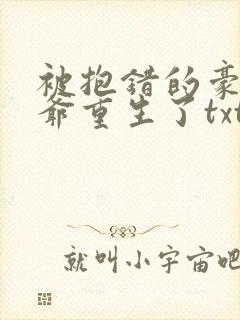 被抱错的豪
爷重生了txt
就叫小宇宙吧